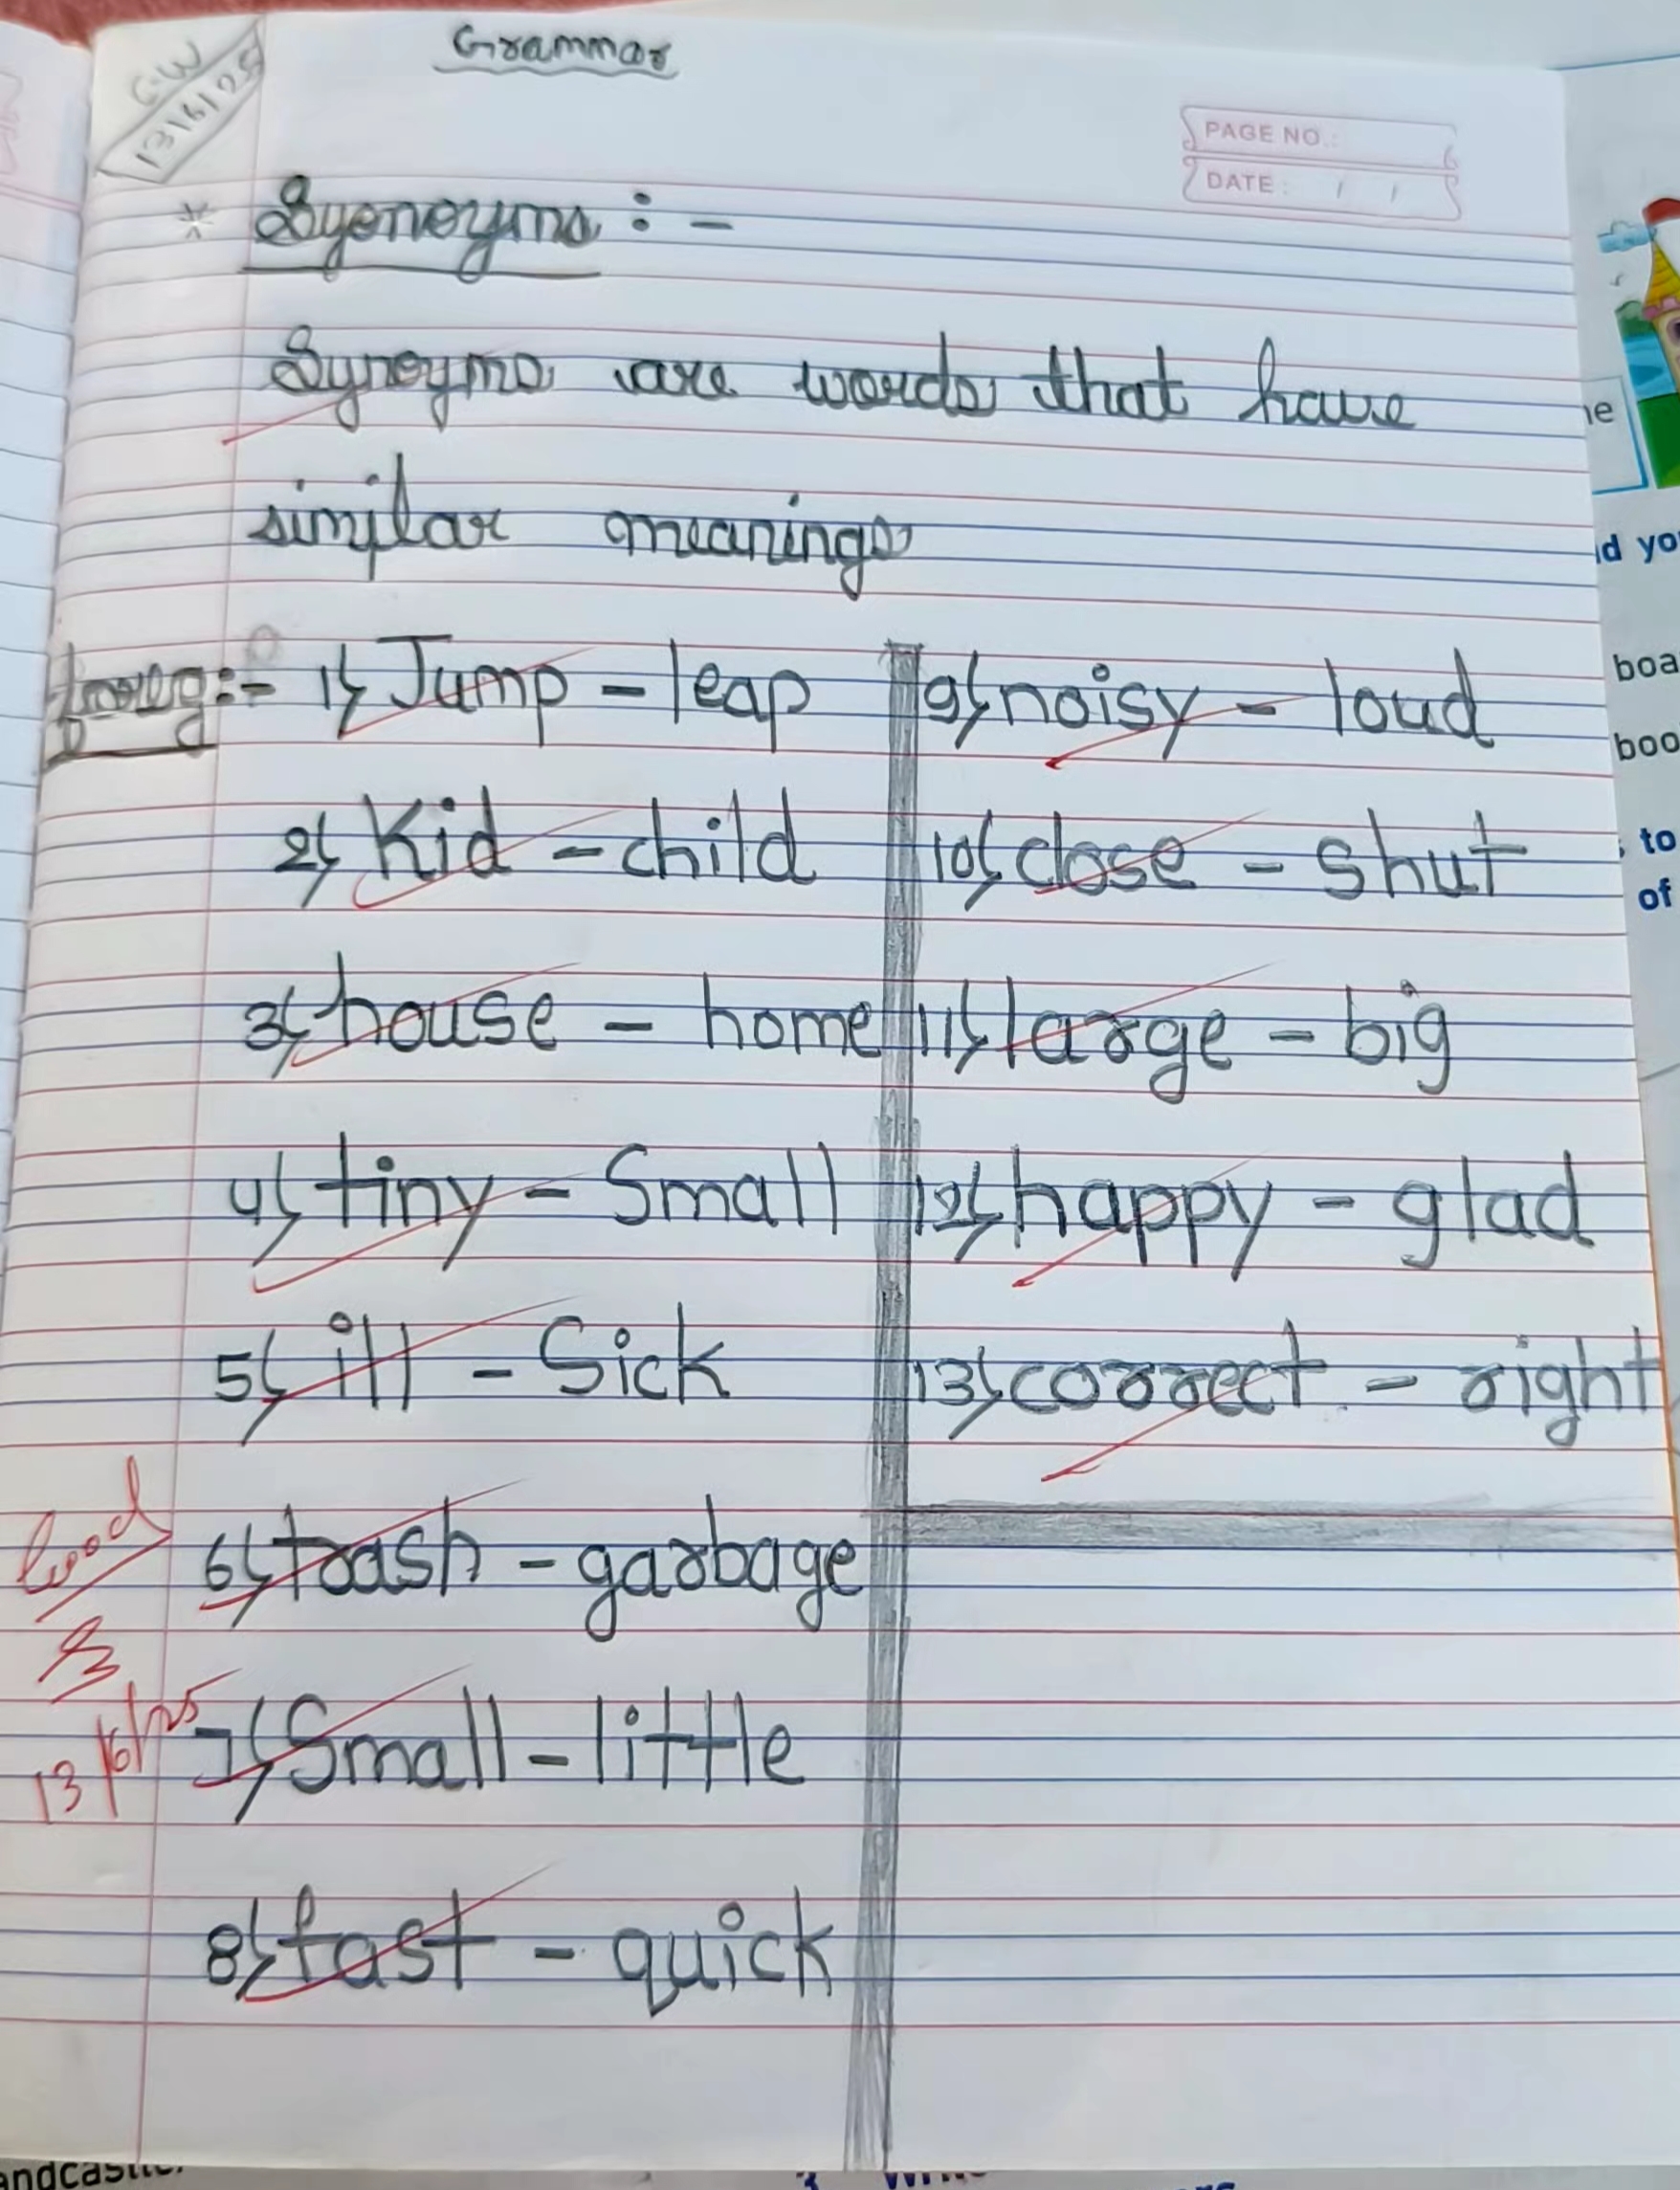 Grammar
C.W
13/6/25
PAGE NO.:
DATE: / /
* Syonoyms :-
Synoyms are words that have
similar meanings
for eg:- 1) Jump - leap
2) Kid - child
3) house - home
4) tiny - Small
5) ill - Sick
6) trash - garbage
7) Small - little
8) fast - quick
9) noisy - loud
10) close - shut
11) large - big
12) happy - glad
13) correct - right
Good
13/6/25
d you
boa
boo
to
of